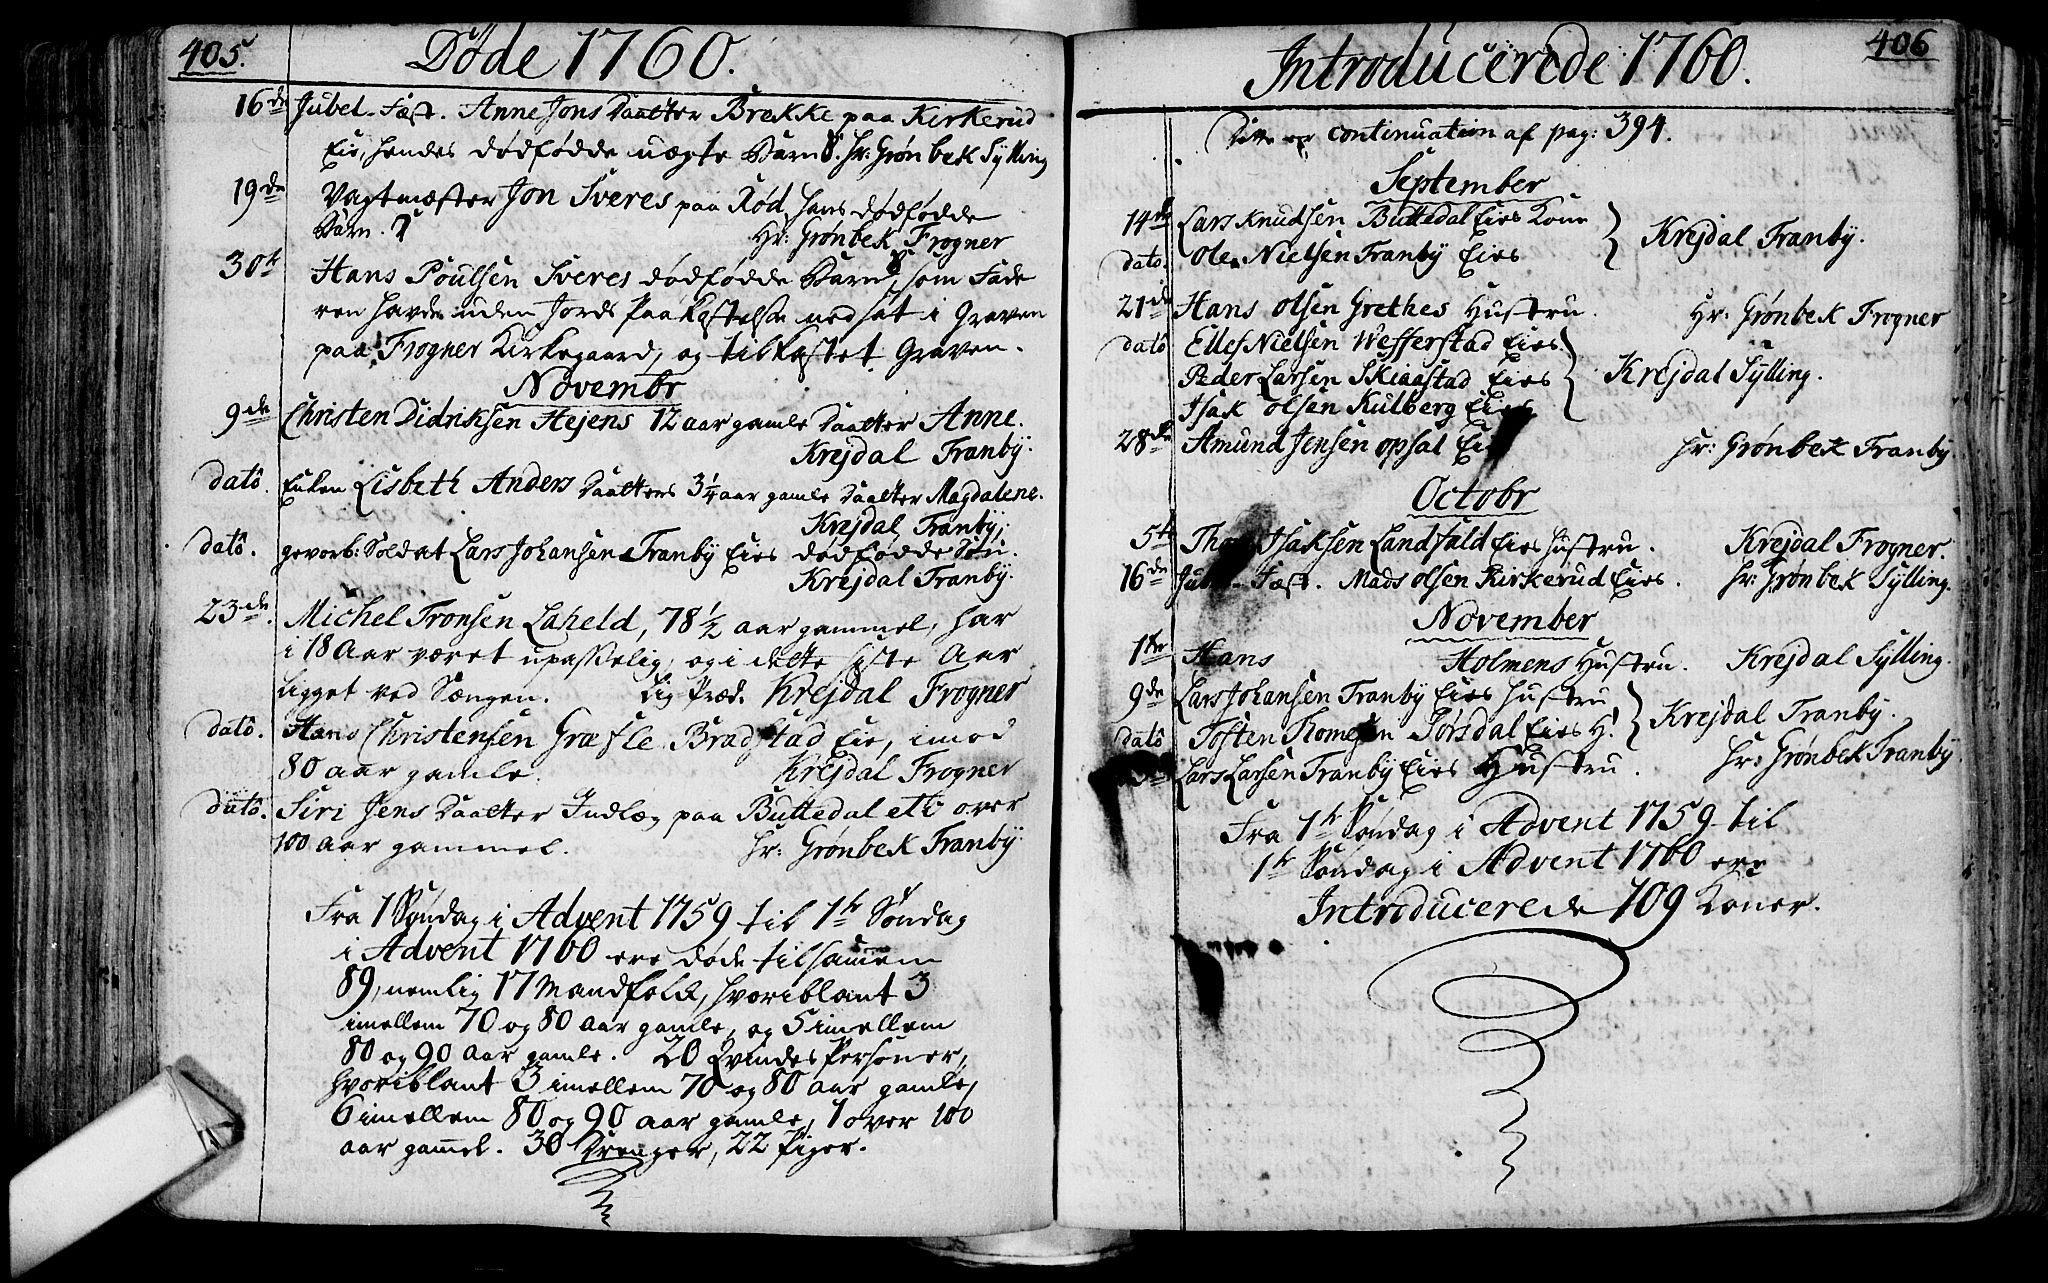 405.
Døde 1760.
16de Jubel-Fæst. Anne Jons Daatter Brekke paa Kirkerud
Eie, hendes dødfødde uægte Barn. Hr: Grønbek Sylling
19de Vagtmæster Jon Sveres paa Rød hans dødfødde
Barn.
Hr: Grønbek Frogner
30te Hans Poulsen Sveres dødfødde Barn, som Fade
ren havde uden Jords Paakastelse nedsat i Graven
paa Frogner Kirkegaard, og tilkastet Graven.
Novembr
9de Christen Didriksen Hejens 12 aar gamle Daatter Anne.
Krejdal Franby.
dato. Enken Lisbeth Anders Daatters 3 1/4 aar gamle Daatter Magdalene.
Krejdal Tranby.
dato. gevorb: Soldat Lars Johansen Tranby Eies dødfødde Søn.
Krejdal Tranby.
23de. Michel Tronsen Laheld, 78 1/2 aar gammel, har
i 18 Aar været upasselig, og i dette siste Aar
ligget ved Sængen. Lig Præd. Krejdal Frogner
dato. Hans Christensen Græsle Bradstad Eie, imod
80 aar gamle. Krejdal Frogner
dato. Siri Jens Daatter Indlæg paa Buttedal et over
100 aar gammel. Hr: Grønbek Tranby
Fra 1 Søndag i Advent 1759 til 1te Søndag
i Advent 1760 ere døde tilsamem
89, nemlig 17 Mandfolk, hvoriblant 3
imellem 70 og 80 Aar gamle, og 5 imellem
80 og 90 Aar gamle. 20 Qvindes Personer,
hvoriblant 3 imellem 70 og 80 aar gamle,
6 imellem 80 og 90 aar gamle, 1 over 100
aar gamel. 30 Drenger, 22 Piger.
406
Introducerede 1760.
Dette er continuation af pag: 394.
September
14de Lars Knudsen Buttedal Eies Kone
Krejdal Tranby.
dato. Ole Nielsen Tranby Eies
21de Hans Olsen Grethes Hustru. Hr: Grønbek Frogner
dato Ellef Nielsen Wefferstad Eies
Peder Larsen Skiagstad Eies Krejdal Sylling.
Isak Olsen Kulberg Eies
28de Amund Jensen Opsal Eies Hr: Grønbek Tranby
Octobr
5te Isaksen Landfald Eies Hustru. Krejdal Frogner.
16de Jubel-Fæst. Mads Olsen Kirkerud Eies. Hr: Grønbek Sylling.
November
1te Hans Holmens Hustru. Krejdal Sylling.
9de Lars Johansen Tranby Eies Hustru
Krejdal Tranby.
dato Tosten Tomesen Torsdal Eies H!
Lars Larsen Tranby Eies Hustru. Hr: Grønbek Tranby.
Fra 1te Søndag i Advent 1759 til
1te Søndag i Advent 1760 ere
Introducerede 109 Koner.